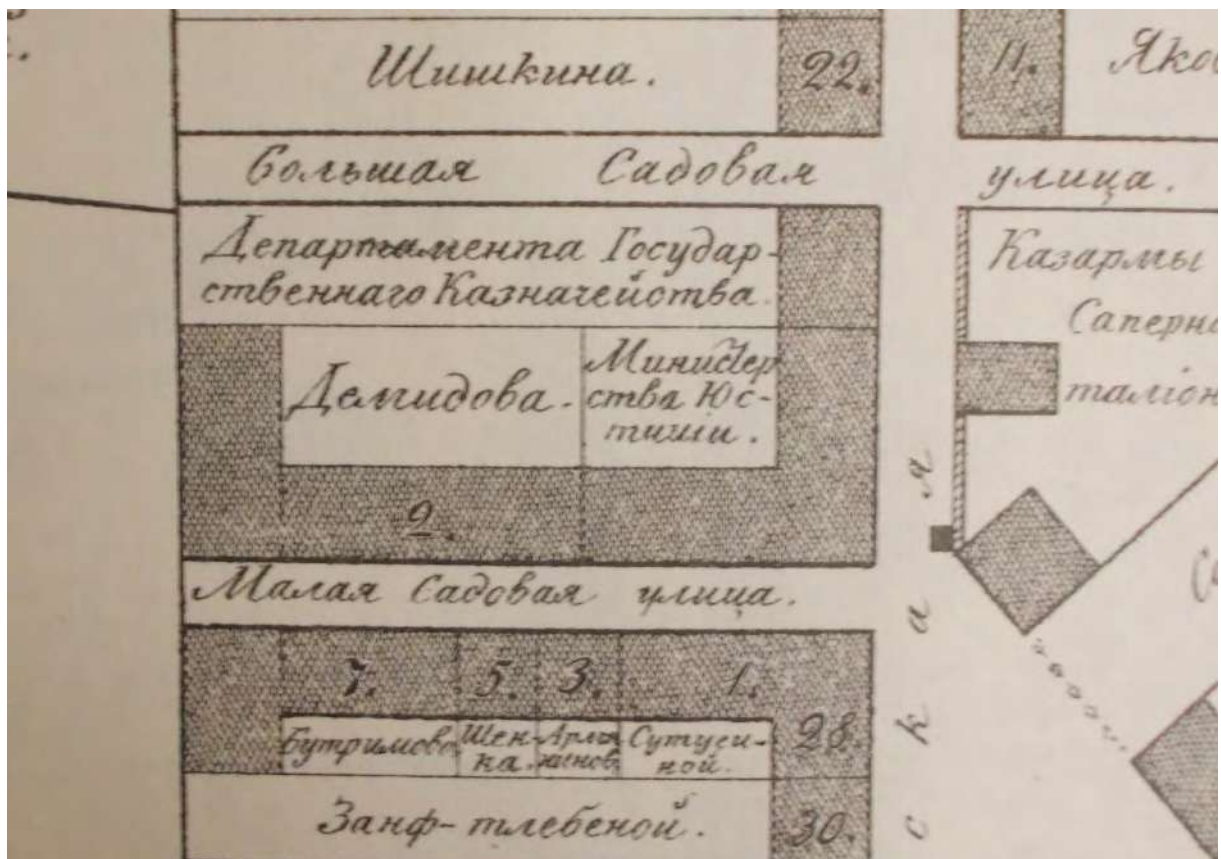 Шишкина.
22.
11.
Яков
Большая Садовая улица.
Департамента Государ-
ственнаго Казначейства.
Казармы
Саперна
таліон
Демидова.
Министер
ства Юс-
тиціи.
9.
Малая Садовая улица.
7.
5.
3.
1.
28.
Бутримова
Шен-
ка.
Сутуги-
ной.
Занф-тлебеной.
30.
с к а я